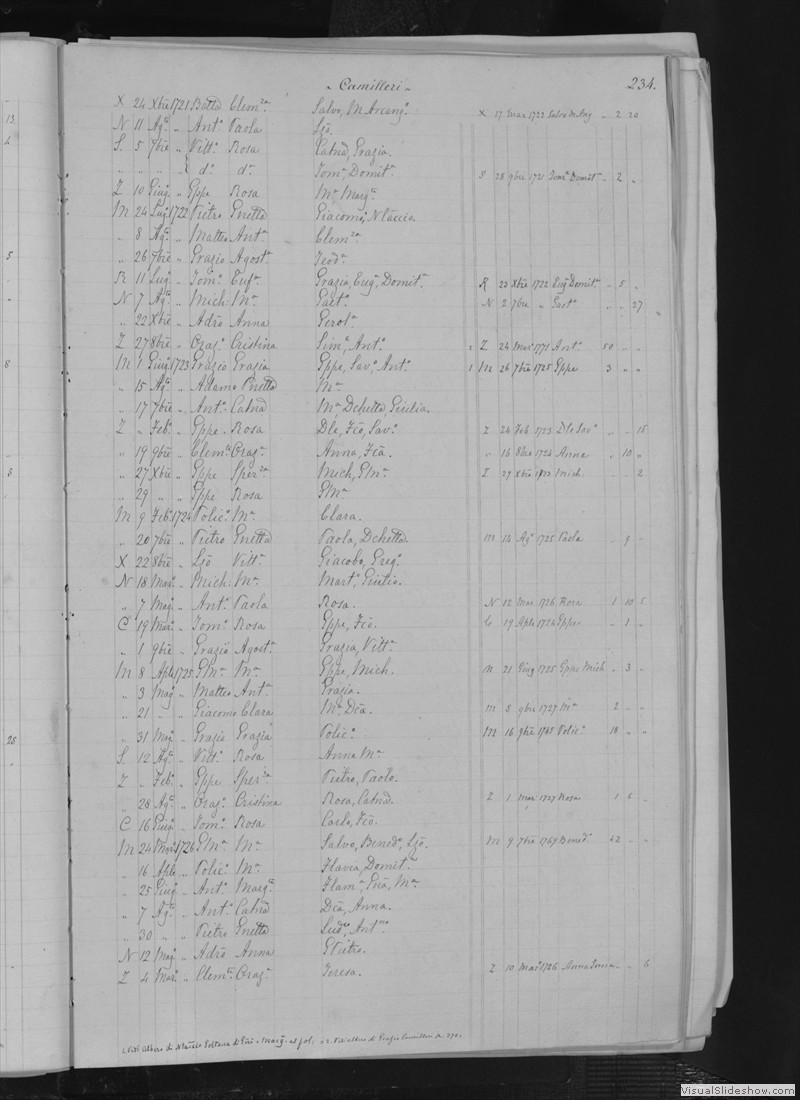 „ Camilleri „ 234.
X 24 Xbre 1721 Batta Clem.za Salvo, M. Arcang.o X 17 Mar. 1722 „ 2 20
N 11 Ag.o „ Ant.o Paola Ljō.
S. 5 7bre „ Vitt.o Rosa Catnā, Grazia.
„ „ „ „ d.o d.a Tom.o Domit.a S 28 9bre 1721 Tom.o Domit.a „ 2 „
Z 10 Giug.o „ Gppe Rosa M.a Marg.ta
M 24 Lug.o 1722 Pietro Gnetta Giacomo,
„ 8 Ag.o „ Matteo Ant.a Clem.za
„ 26 7bre „ Grazio Agost.a Teod.a
R 11 Lug.o „ Tom.o Euf.a Grazia, Eug.a Domit.a R 23 Xbre 1722 Eug.a Domit.a „ 5 „
N 7 Ag.o „ Mich: M.a Gaet.o N 2 7bre „ Gaet.o „ „ 27
„ 22 Xbre „ Adrō Anna Gerol.a
Z 27 8bre „ Oraz.o Cristina Sim.e, Ant.o 2 Z 24 Mar. 1771 Ant.o 50 „ „
M 1 Giug.o 1723 Grazio Grazia Gppe, Sav.o, Ant.o 1 M 26 7bre 1725 Gppe 3 „ „
„ 15 Ag.o „ Adamo Gnetta M.a
„ 17 7bre „ Ant.o Catnā M.a Dchetta, Cicilia.
Z „ Feb.o „ Gppe Rosa Dle, Fcō, Sav.o Z 24 Feb 1723 Dle Sav.o „ „ 15
„ 19 9bre „ Clem.te Oraz.a Anna, Fcā. „ 16 8bre 1724 Anna „ 10 „
„ 27 Xbre „ Gppe Sper.za Mich, GMa Z 27 Xbre 1723 Mich. „ „ 2
„ 29 „ „ Gppe Rosa GMa
M 9 Feb.o 1724 Polic.o M.a Clara.
„ 20 7bre „ Pietro Gnetta Paola, Dchetta. M 14 Ag.o 1725 Paola „ 9 „
X 22 8bre „ Ljō Vitt.a Giacobo, Greg.o
N 18 Mar.o „ Mich: M.a Mart.o, Giulio.
„ 7 Mag.o „ Ant.o Paola Rosa. N 12 Mar. 1726 Rosa 1 10 5
C 19 Mar.o „ Tom.o Rosa Gppe, Fcō. C 19 Aple 1724 Gppe „ 1 „
„ 1 9bre „ Grazio Agost.a Grazia, Vitt.a
M 8 Aple 1725 GMa M.a Gppe, Mich. M 21 Giug 1725 Gppe Mich „ 3 „
„ 3 Mag.o „ Matteo Ant.a Grazia.
„ 21 „ „ Giacomo Clara M.a Dcā. M 5 9bre 1727 M.a 2 „ „
„ 31 Mag.o „ Grazio Grazia Polic.o M 16 9bre 1745 Polic.o 18 „ „
S. 12 Ag.o „ Vitt.o Rosa Anna M.a
Z „ Feb.o „ Gppe Sper.za Pietro, Paolo.
„ 28 Ag.o „ Oraz.o Cristina Rosa, Catnā. Z 1 Mar 1727 Rosa 1 6 „
C 16 Giug.o „ Tom.o Rosa Carlo, Fcō.
M 24 1726 GMa M.a Salvo, Bened.o, Ljō. M 9 7bre 1769 Bened.o 42 „ „
„ 16 Aple „ Polic.o M.a Flavia, Domit.a
„ 25 Giug.o „ Ant.o Marg.ta Flam.a, M.a
„ 7 Ag.o „ Ant.o Catnā Dcā, Anna.
„ 30 „ „ Pietro Gnetta Lud.o, Ant.no
N 12 Mag.o „ Adrō Anna GPietro.
Z 4 Mar.o „ Clem.te Oraz.a Teresa. Z 10 Mar.o 1726 Anna „ „ 6
1. Vedi albero di
VisualSlideshow.com